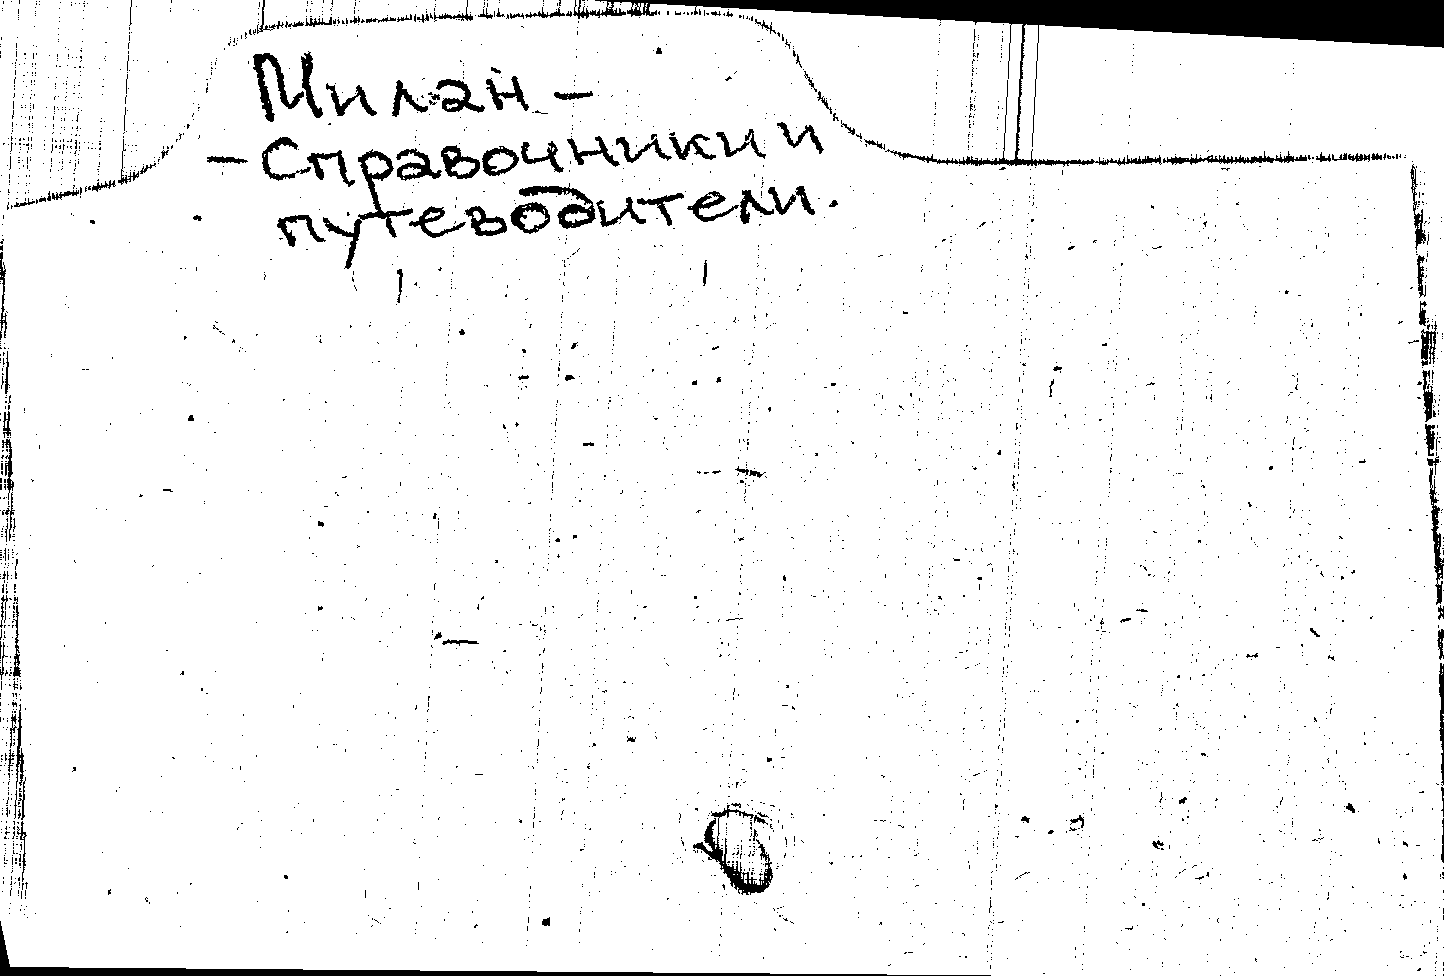 Милан –
– Справочники и
путеводители.